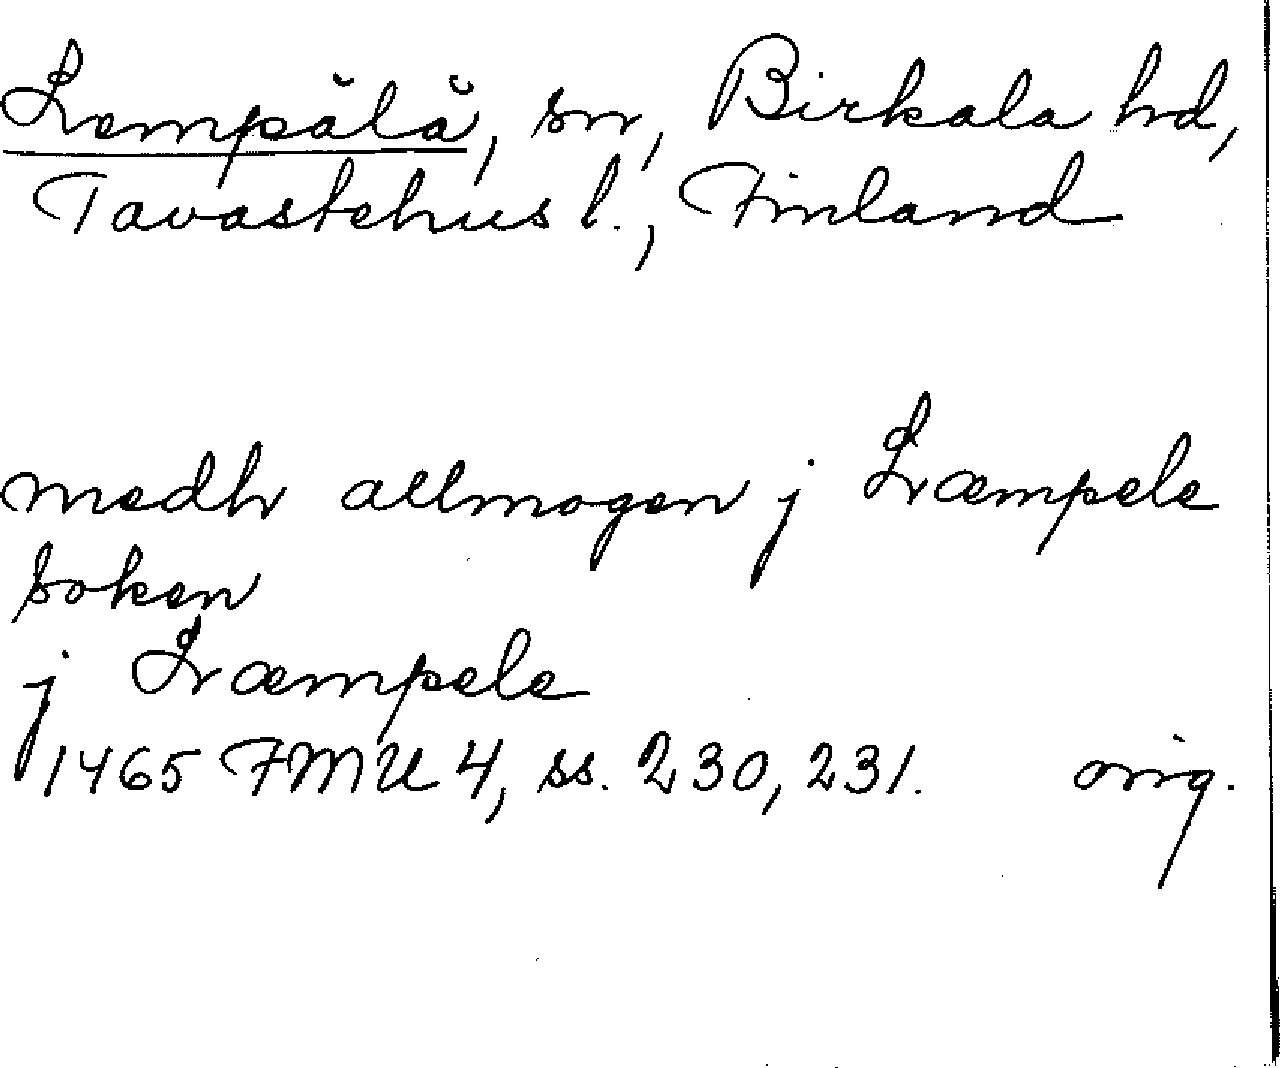 Lempälä, sn, Birkala hd,
Tavastehus l., Finland
medh allmogen j Læmpele
soken
j Læmpele
1465 FMU 4, ss. 230, 231. orig.